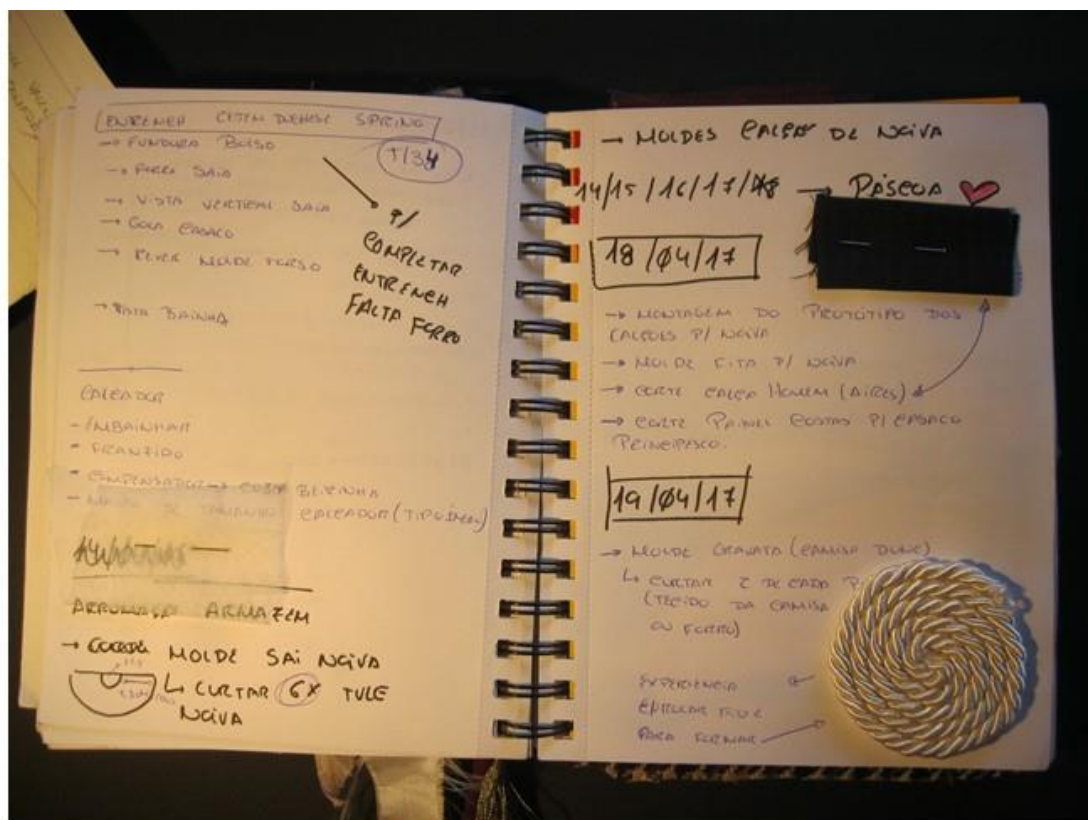 SPRING
→ FUNDURA BOLSO
→ FORRO SAIA
→ VISTA VERTICAL SAIA
→ GOLA CASACO
→ MOLDE TORSO
→ BAINHA
T/34
P/
COMPLETAR
ENTRENCH
FALTA FORRO
CALCADOR
- EMBAINHAR
- FRANZIDO
- COMPENSADOR →
CALCADOR
ARMAZEM
→ MOLDE SAI NOIVA
↳ CURTAR 6X TULE
NOIVA
→ MOLDES CALÇAS DE NOIVA
14/15/16/17/ → PÁSCOA
18/04/17
→ MONTAGEM DO PROTÓTIPO DOS
CALÇÕES P/ NOIVA
→ MOLDE FITA P/ NOIVA
→ CORTE CALÇA HOMEM (AIRES)
→ CORTE PAINEL COSTAS P/ CASACO
PRINCIPESCO.
19/04/17
→ MOLDE GRAVATA (CAMISA DUNE)
↳ CURTAR 2 DE CADA P
(TECIDO DA CAMISA
OU FORRO)
EXPERIENCIA
ENROLAR
PARA FORMAR